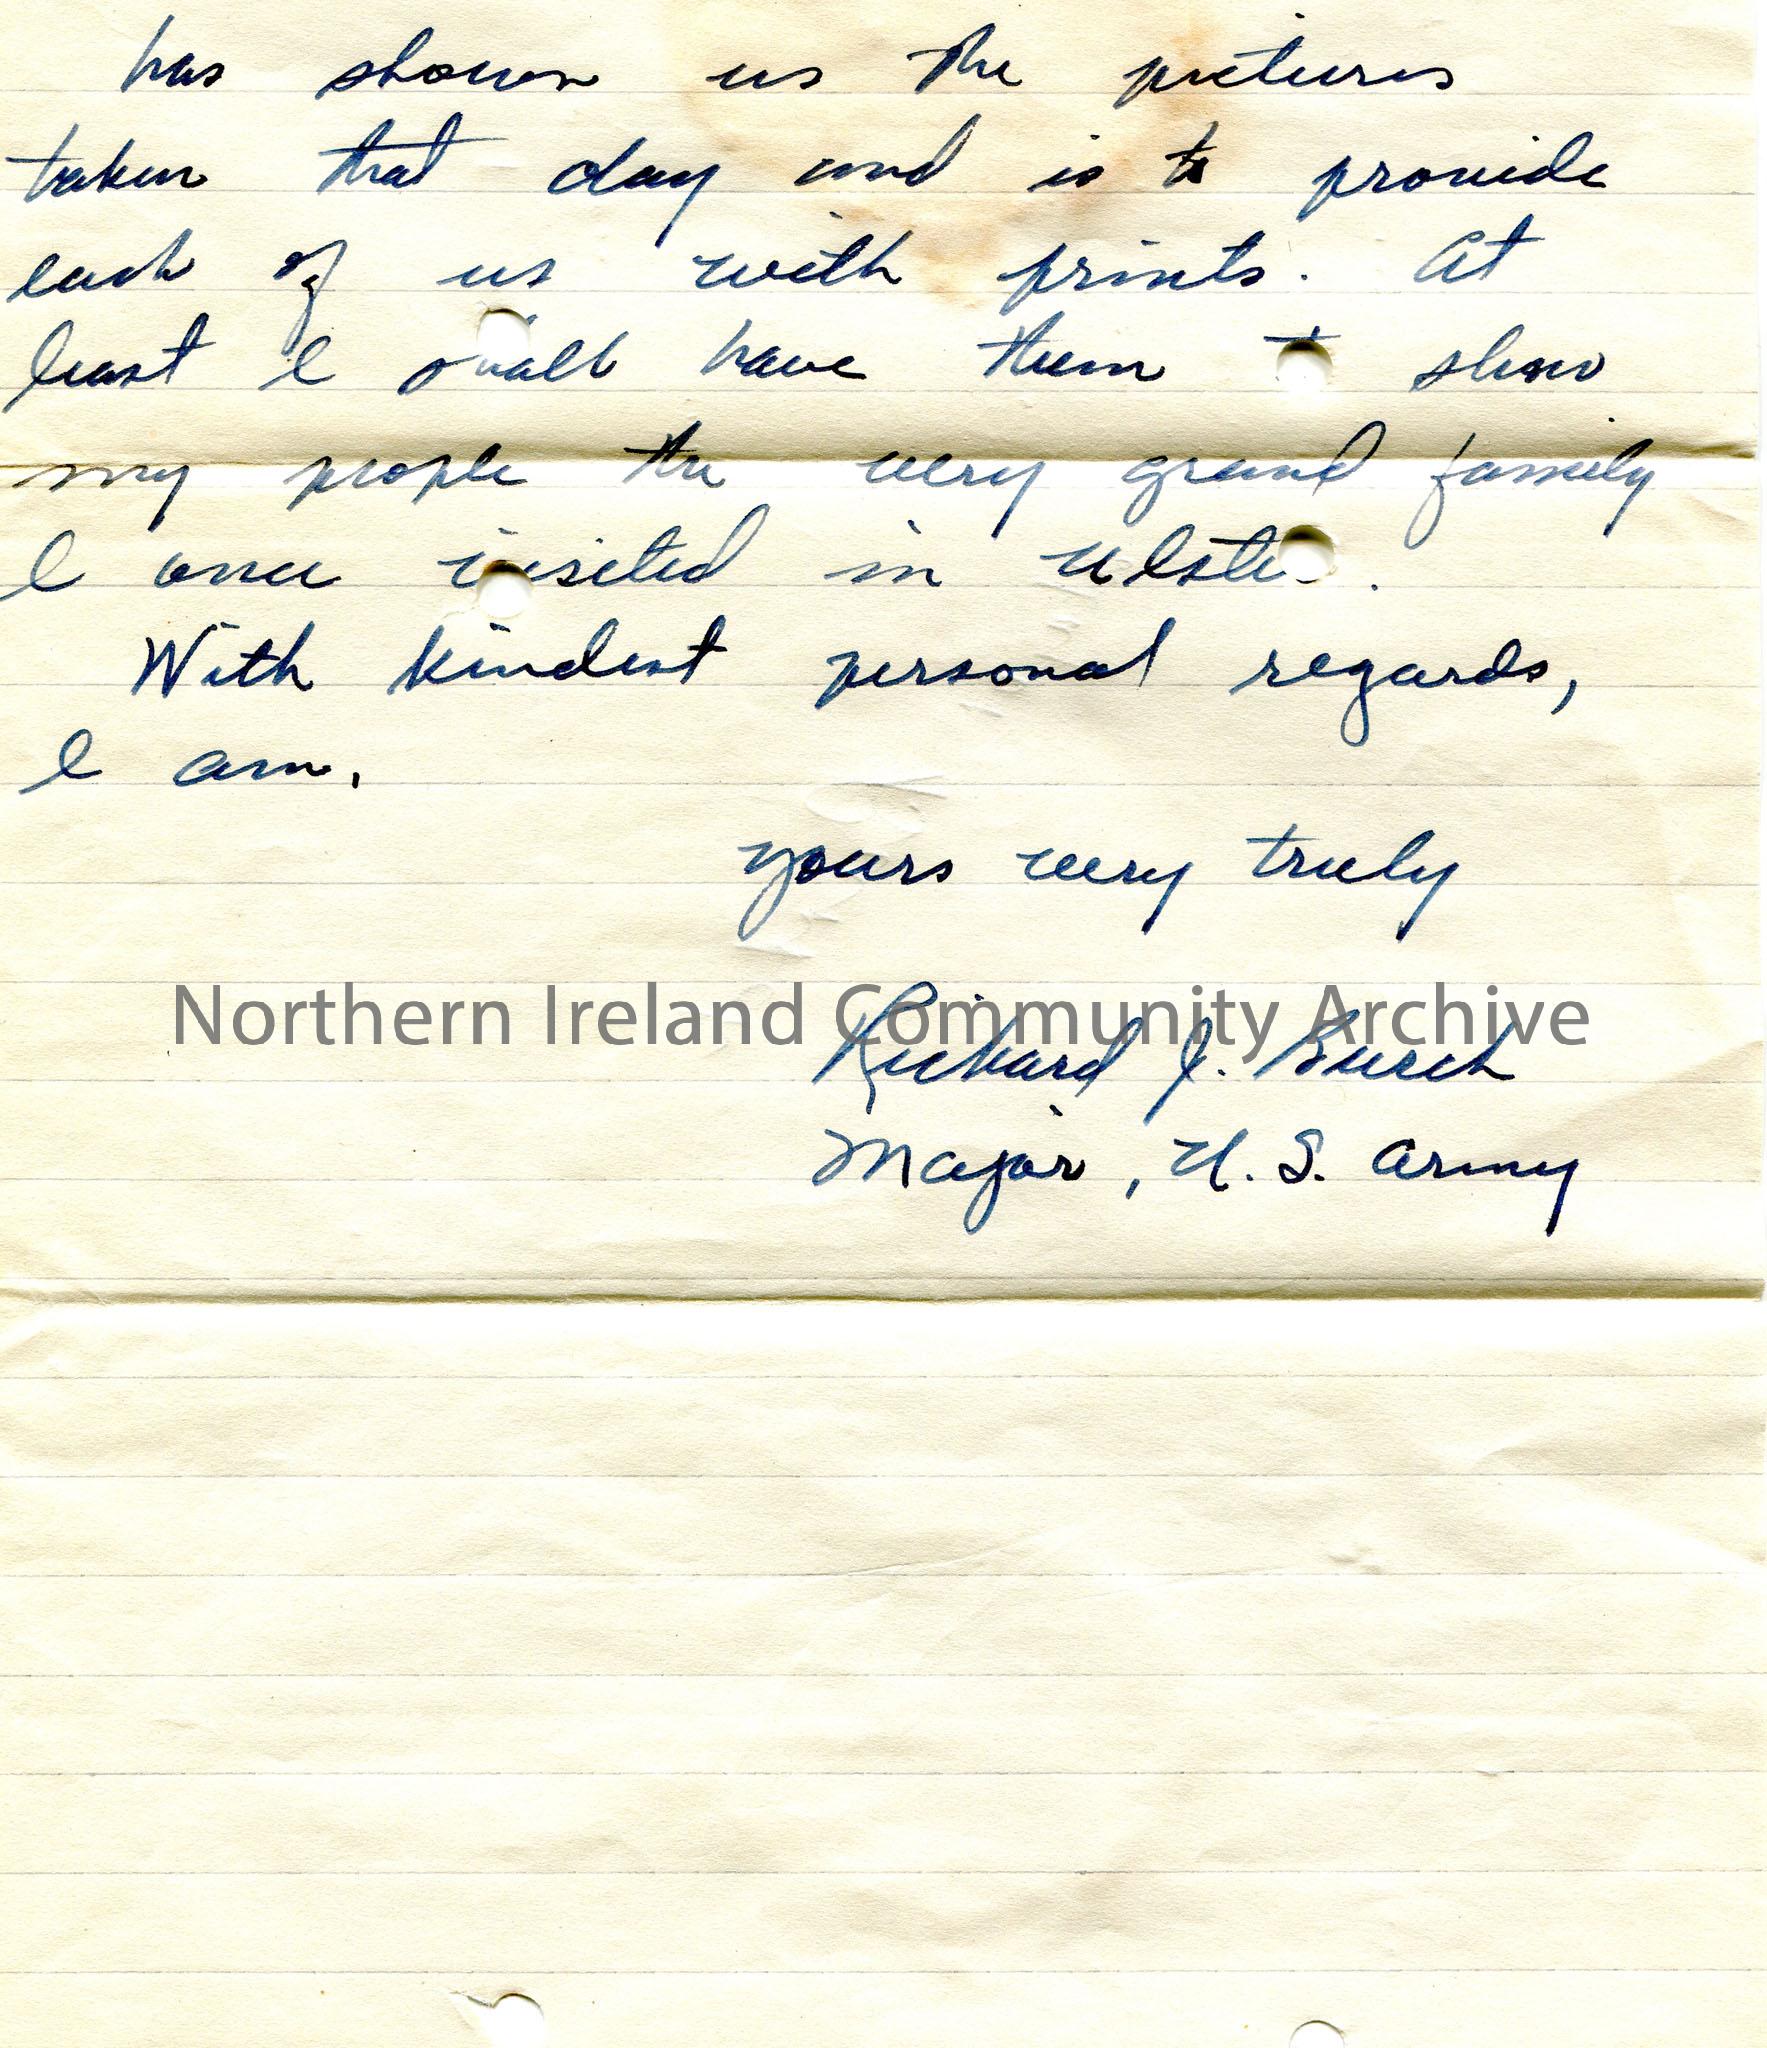 has shown us the pictures
taken that day and is to provide
each of us with prints. At
least I shall have them to show
my people the very grand family
I once visited in Ulster.
With kindest personal regards,
I am,
Yours very truly
Northern Ireland Community Archive
Richard J. Burch
Major, U.S. Army